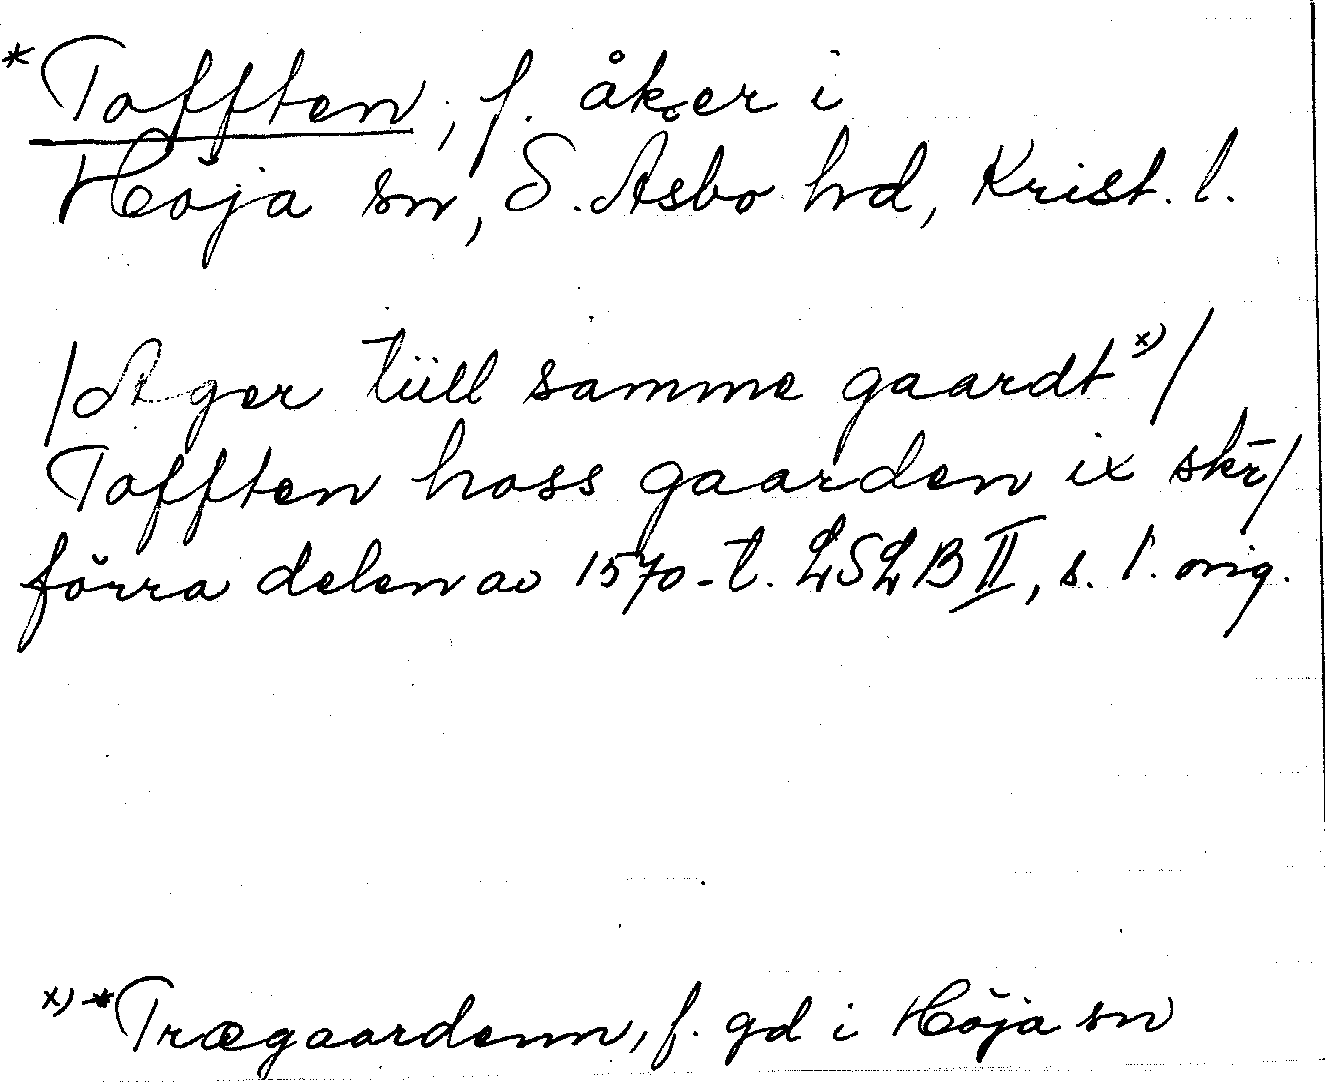 *Tofften, f. åker i
Höja sn, S. Åsbo hd, Krist. l.
/Ager tüll samme gaardt x)/
Tofften hoss gaarden ix skr̄/
förra delen av 1570-t. LSLB II, s. 1. orig.
x) *Trægaardenn, f. gd i Höja sn